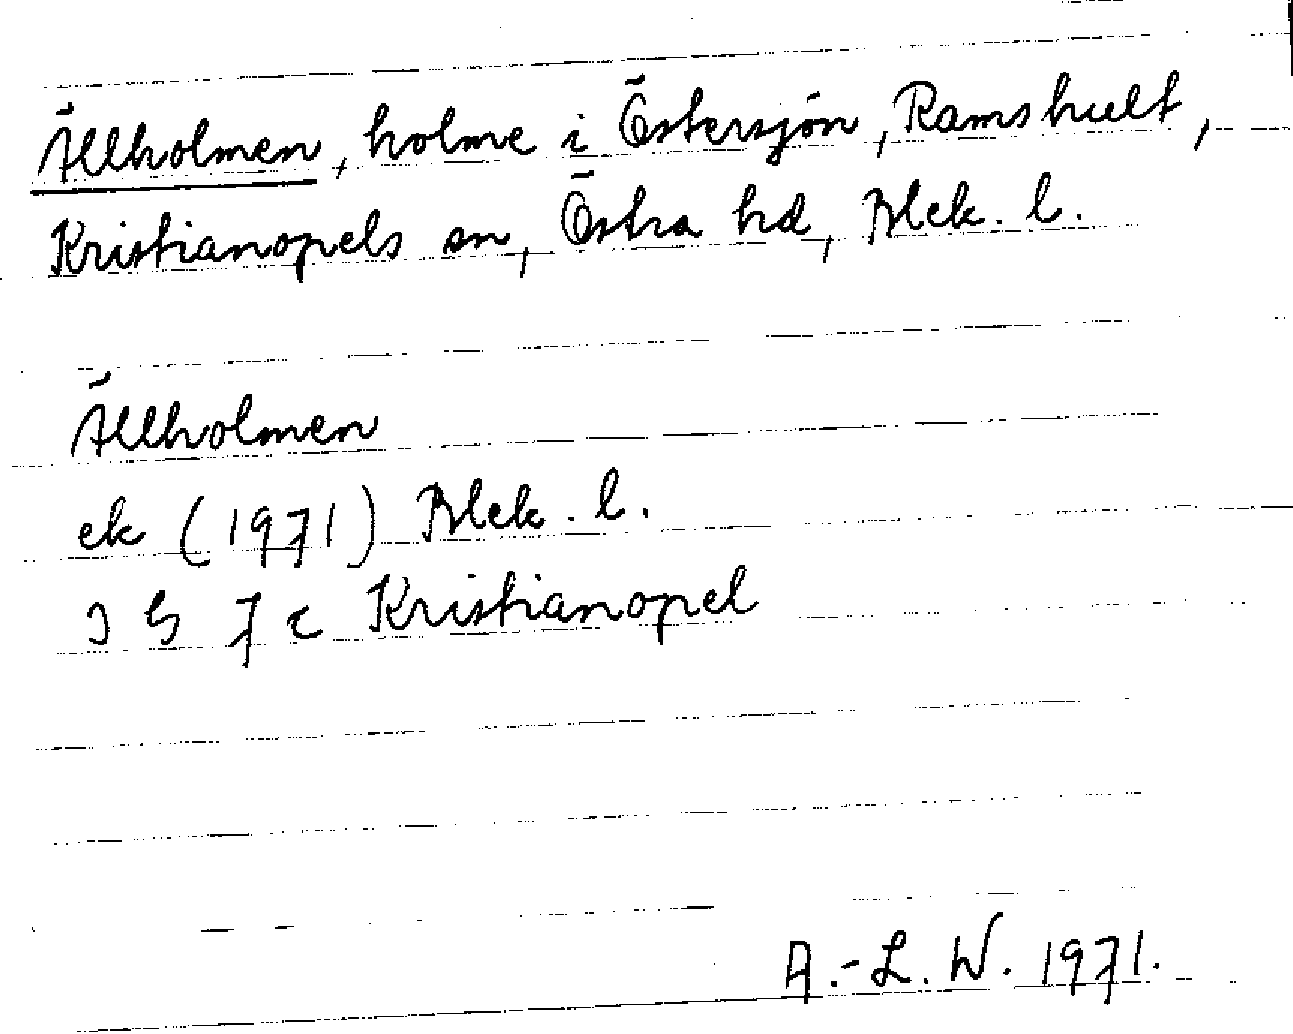 Ällholmen, holme i Östersjön, Ramshult,
Kristianopels sn, Östra hd, Blek. l.
Ällholmen
ek (1971) Blek. l.
3 G 7 c Kristianopel
A.-L. W. 1971.